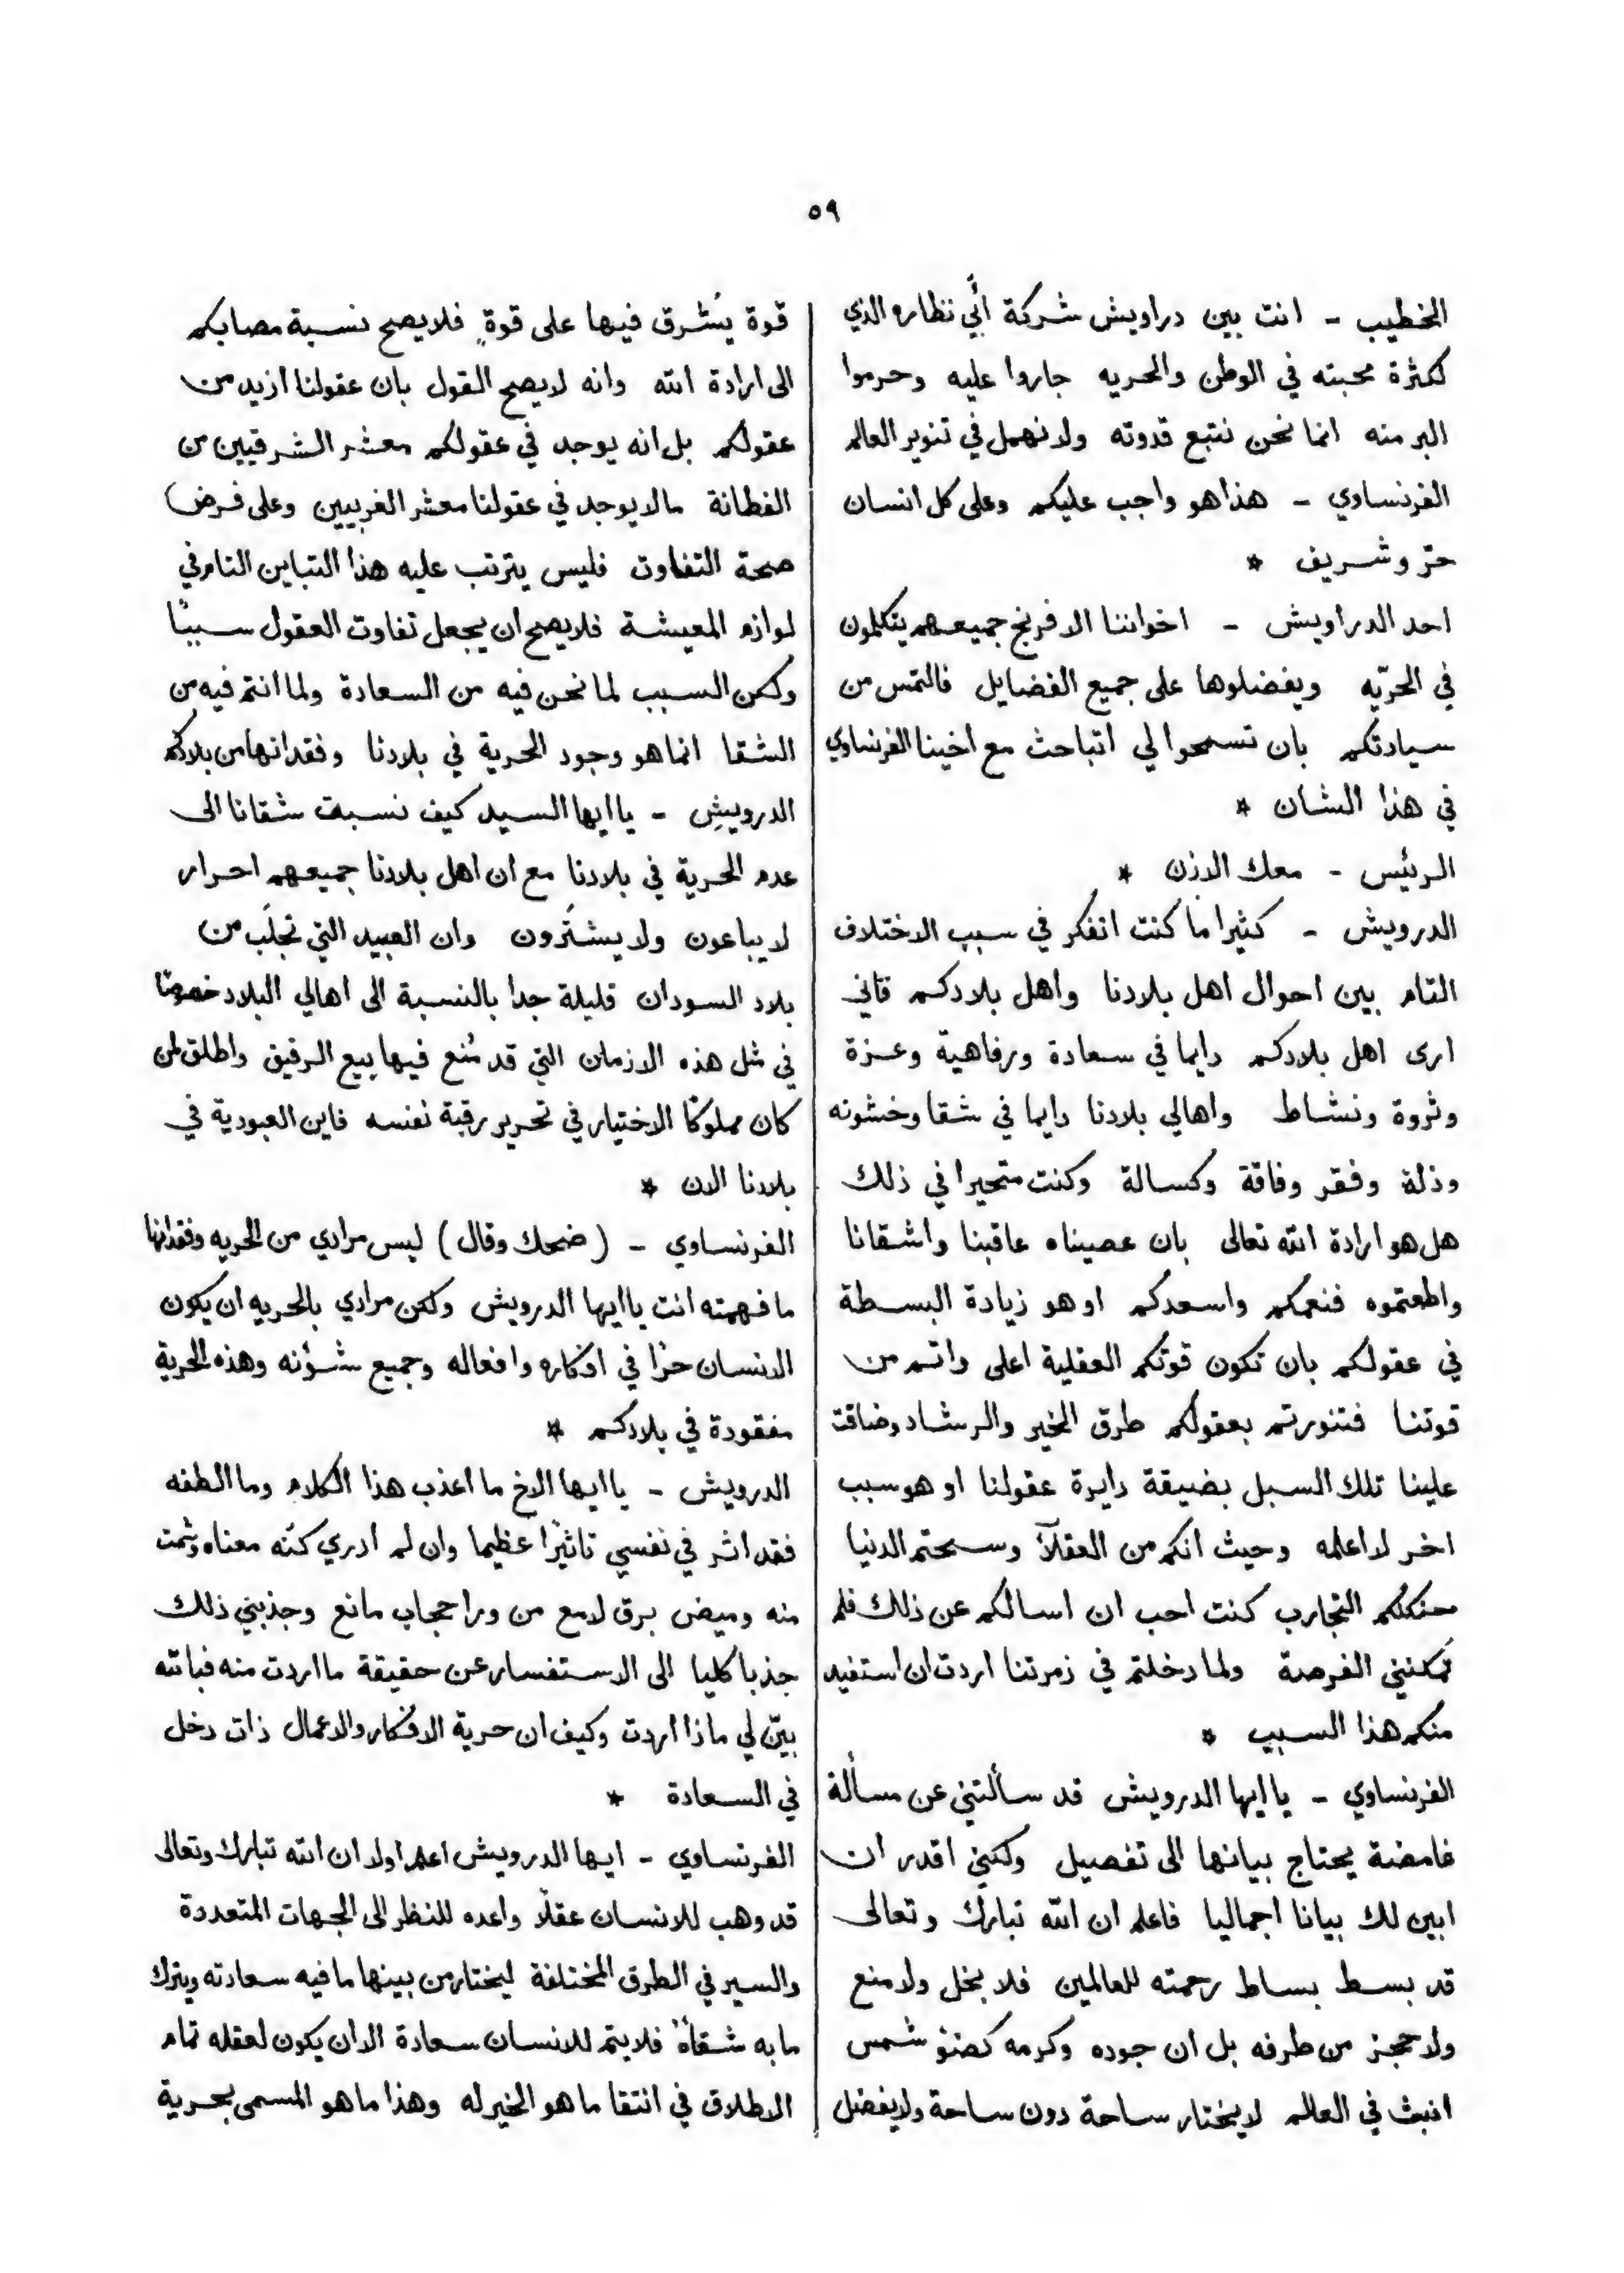 ٥٩
الخطيب - انت بين دراويش شركة أبي نظاره الذي
لكثرة محبته في الوطن والحريه جاروا عليه وحرموا
البر منه انما نحن نتبع قدوته ولا نهمل في تنوير العالم
الفرنساوي - هذا هو واجب عليكم وعلى كل انسان
حرّ وشريف *
احد الدراويش - اخواننا الافرنج جميعهم يتكلمون
في الحرّيه ويفضلوها على جميع الفضايل فالتمس من
سيادتكم بان تسمحوا لي اتباحث مع اخينا الفرنساوي
في هذا الشان *
الرئيس - معك الاذن *
الدرويش - كثيرا ما كنت اتفكر في سبب الاختلاف
التام بين احوال اهل بلادنا واهل بلادكم فاني
ارى اهل بلادكم دايما في سعادة ورفاهية وعزة
وثروة ونشاط واهالي بلادنا دايما في شقا وخشونه
وذلة وفقر وفاقة وكسالة وكنت متحيرا في ذلك
هل هو ارادة الله تعالى بان عصيناه عاقبنا واشقانا
واطعتموه فنعمكم واسعدكم او هو زيادة البسطة
في عقولكم بان تكون قوتكم العقلية اعلى واتم من
قوتنا فتنورتم بعقولكم طرق الخير والرشاد وضاقت
علينا تلك السبل بضيقة دايرة عقولنا او هو سبب
اخر لا اعلمه وحيث انكم من العقلآ وسحتم الدنيا
حنكتكم التجارب كنت احب ان اسالكم عن ذلك فلم
تمكنني الفرصة ولما دخلتم في زمرتنا اردت ان استفيد
منكم هذا السبب *
الفرنساوي - يا ايها الدرويش قد سألتني عن مسألة
غامضة يحتاج بيانها الى تفصيل ولكني اقدر ان
ابين لك بيانا اجماليا فاعلم ان الله تبارك وتعالى
قد بسط بساط رحمته للعالمين فلا بخل ولا منع
ولا حجز من طرفه بل ان جوده وكرمه كضوٴ شمس
انبث في العالم لا يختار ساحة دون ساحة ولا يفضل
قوة يُشرق فيها على قوةٍ فلا يصح نسبة مصابكم
الى ارادة الله وانه لا يصح القول بان عقولنا ازيد من
عقولكم بل انه يوجد في عقولكم معشر الشرقيين من
الفطانة ما لا يوجد في عقولنا معشر الغربيين وعلى فرض
صحة التفاوت فليس يترتب عليه هذا التباين التام في
لوازم المعيشة فلا يصح ان يجعل تفاوت العقول سببًا
ولكن السبب لما نحن فيه من السعادة ولما انتم فيه من
الشقا انما هو وجود الحرية في بلادنا وفقدانها من بلادكم
الدرويش - يا ايها السيد كيف نسبت شقانا الى
عدم الحرية في بلادنا مع ان اهل بلادنا جميعهم احرار
لا يباعون ولا يشتَرون وان العبيد التي تجلَب من
بلاد السودان قليلة جدا بالنسبة الى اهالي البلاد خصوصًا
في مثل هذه الازمان التي قد مُنع فيها بيع الرقيق واطلق لمن
كان مملوكًا الاختيار في تحرير رقبة نفسه فاين العبودية في
بلادنا الان *
الفرنساوي - ( ضحك وقال ) ليس مرادي من الحريه وفقدانها
ما فهمته انت يا ايها الدرويش ولكن مرادي بالحريه ان يكون
الانسان حرًا في افكاره وافعاله وجميع شؤنه وهذه الحرية
مفقودة في بلادكم *
الدرويش - يا ايها الاخ ما اعذب هذا الكلام وما الطفه
فقد اثر في نفسي تاثيرًا عظيما وان لم ادري كنه معناه وشمت
منه وميض برق لامع من ورا حجاب مانع وجذبني ذلك
جذبا كليا الى الاستفسار عن حقيقة ما اردت منه فبالله
بيّن لي ماذا اردت وكيف ان حرية الافكار والاعمال ذات دخل
في السعادة *
الفرنساوي - ايها الدرويش اعلم اولا ان الله تبارك وتعالى
قد وهب للانسان عقلًا واعده للنظر الى الجهات المتعددة
والسير في الطرق المختلفة ليختار من بينها ما فيه سعادته ويترك
ما به شقاءُه فلا يتم للانسان سعادة الا ان يكون لعقله تمام
الاطلاق في انتقا ما هو الخير له وهذا ما هو المسمى بحرية